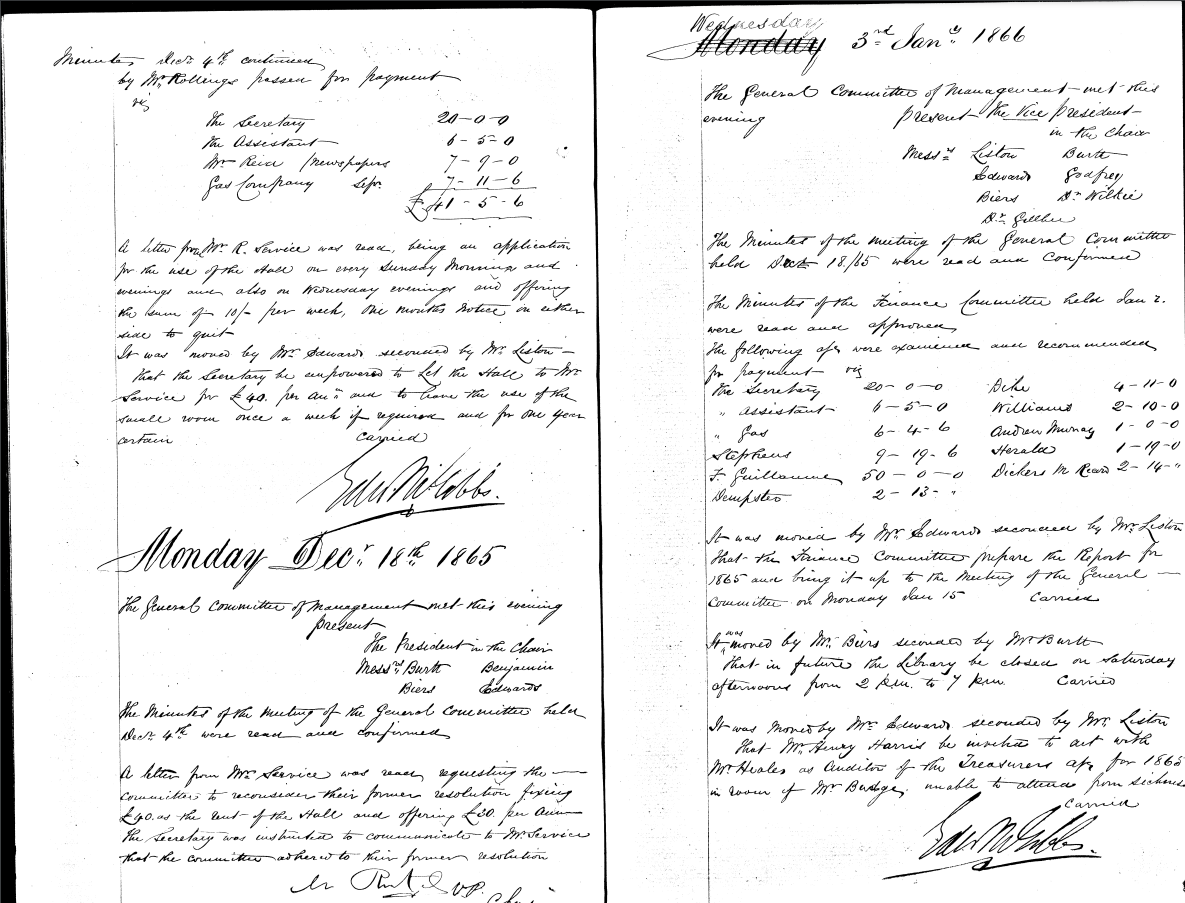 Minutes Decr 4th continued
by Mr Rollings passed for payment
viz
The Secretary 20-0-0
The Assistant 6-5-0
Mr Reid /Newspapers 7-9-0
Gas Company Sepr. 7-11-6
£41-5-6
A letter from Mr R. Service was read, being an application
for the use of the Hall on every Sunday Morning and
evenings and also on Wednesday evenings and offering
the sum of 10/- per week, One months Notice on either
side to quit
It was moved by Mr Edwards seconded by Mr Liston -
That the Secretary be empowered to Let the Hall to Mr
Service for £40. per Anm and to have the use of the
small room once a week if required and for one year
certain Carried
Monday Decr 18th 1865
The General Committee of Management met this evening
present
The President in the Chair
Messrs Burtt Benjamin
Biers Edwards
The Minutes of the Meeting of the General Committee held
Decr 4th were read and confirmed
A letter from Mr Service was read requesting the
Committee to reconsider their former resolution fixing
£40. as the rent of the Hall and offering £30. per Ann
The Secretary was instructed to communicate to Mr Service
that the Committee adhered to their former resolution
V.P.
Wednesday
Monday 3rd Jany 1866
The General Committee of Management met this
evening Present The Vice President
in the Chair
Messrs Liston Burtt
Edwards Godfrey
Biers Dr Wilkie
Dr
The Minutes of the meeting of the General Committee
held Decr 18/65 were read and confirmed
The Minutes of the Finance Committee held Jan 2.
were read and approved
The following a/cs were examined and recommended
for payment viz
The Secretary 20-0-0 Dike 4-11-0
" Assistant 6-5-0 Williams 2-10-0
" Gas 6-4-6 Andrew Murray 1-0-0
Stephens 9-19-6 Herald 1-19-0
F. Guillaume 50-0-0 Dickers M Record 2-14-"
Dempster 2-13-"
It was moved by Mr Edwards seconded by Mr Liston
That the Finance Committee prepare the Report for
1865 and bring it up to the Meeting of the General
Committee on Monday Jan 15 Carried
It was moved by Mr Biers seconded by Mr Burtt
That in future the Library be closed on Saturday
afternoons from 2 p.m. to 7 p.m. Carried
It was moved by Mr Edwards seconded by Mr Liston
That Mr Henry Harris be invited to act with
Mr Heales as Auditor of the Treasurers a/c for 1865
in room of Mr Budge, unable to attend from sickness
Carried